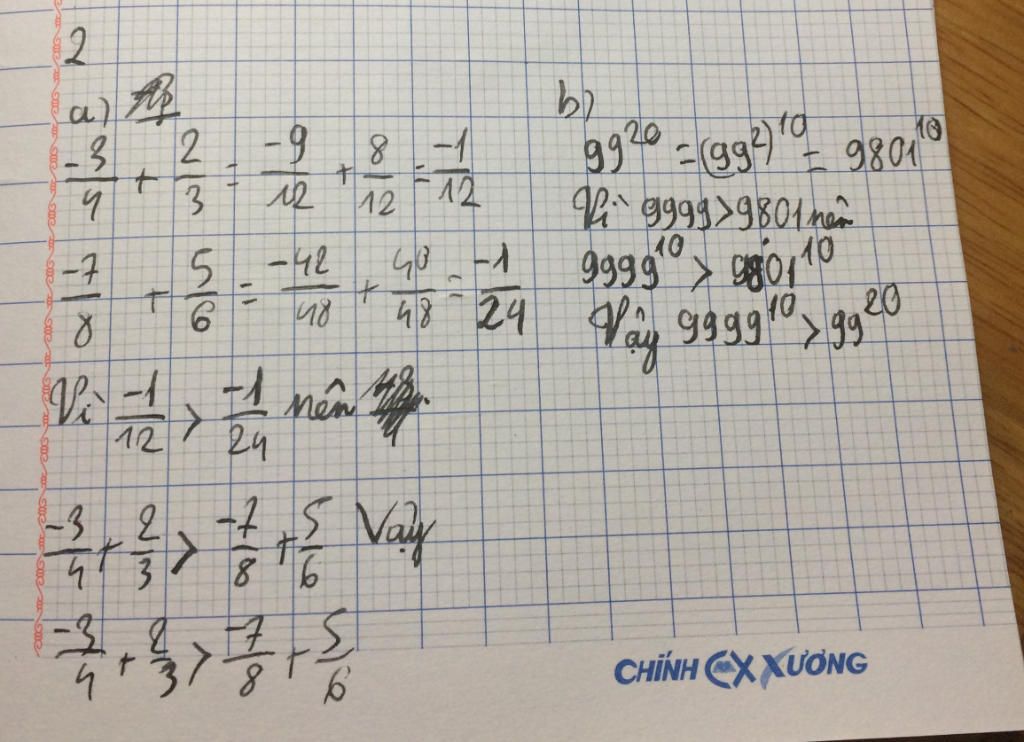 2
a)
-3/4 + 2/3 = -9/12 + 8/12 = -1/12
-7/8 + 5/6 = -42/48 + 40/48 = -1/24
Vì -1/12 > -1/24 nên
-3/4 + 2/3 > -7/8 + 5/6 Vậy
-3/4 + 2/3 > -7/8 + 5/6
b)
99²⁰ = (99²)¹⁰ = 9801¹⁰
Vì 9999 > 9801 nên
9999¹⁰ > 9801¹⁰
Vậy 9999¹⁰ > 99²⁰
CHÍNH CX XƯƠNG